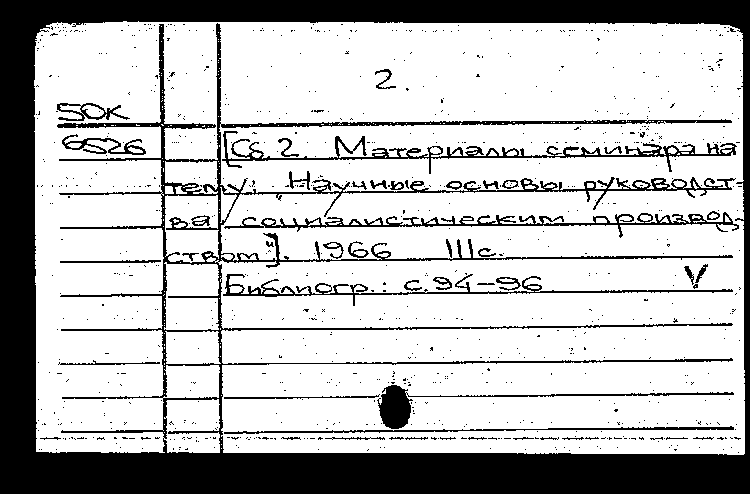 2.
50К
6526 [Сб. 2. Материалы семинара на
тему: „Научные основы руководст-
ва социалистическим производ-
ством"]. 1966 111с.
Библиогр.: с. 94-96 V